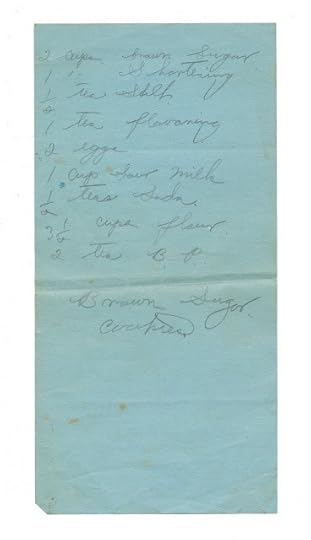 2 cups brown Sugar
1 " Shortening
1/2 tea Salt
1 tea flavoring
2 eggs
1 cup Sour Milk
1/2 teas Soda
3 1/2 cups flour
2 tea B P
Brown Sugar
Cookies